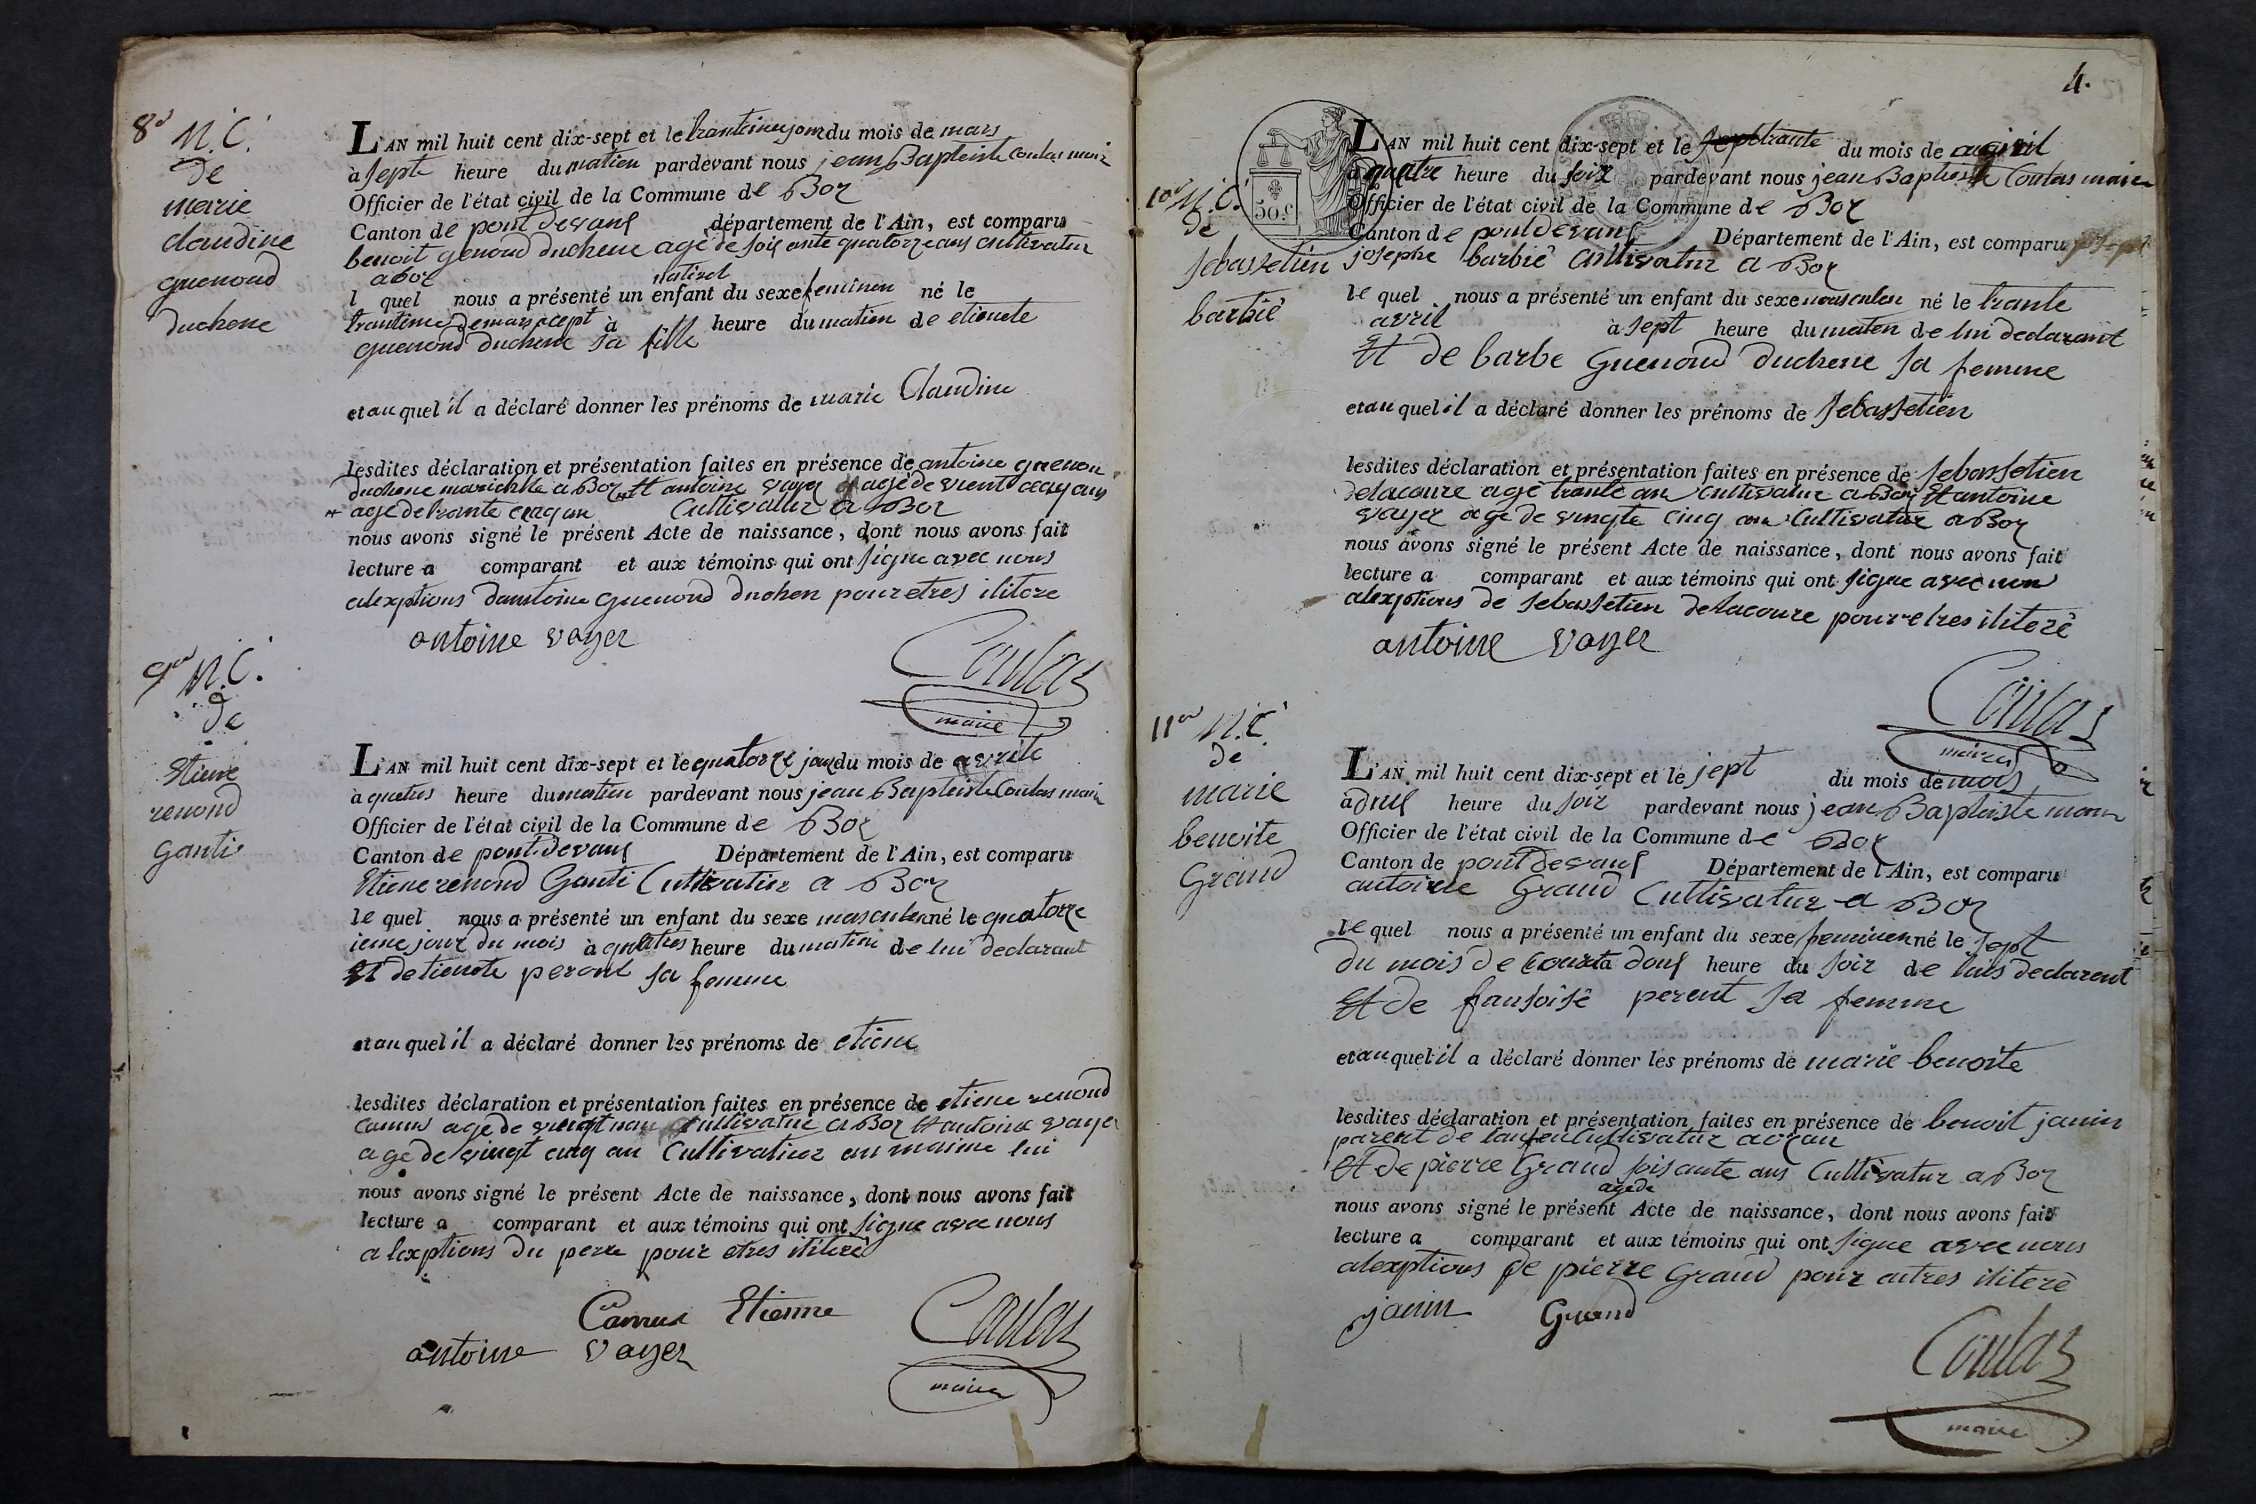 8e
N.C.
de
marie
claudine
guenoud
duchene
L'AN mil huit cent dix-sept et le trantieme jour du mois de mars
à septe heure du matien pardevant nous jean Baptiste Coulas maire
Officier de l'état civil de la Commune de Boz
Canton de pont devaus département de l'Ain, est comparu
benoit genoud duchene agé de soisante quatorze ans cultivatur
a boz
natirel
l quel nous a présenté un enfant du sexe feminen né le
trantieme de mars a cept à heure du matien de etienete
guenoud duchene sa fille
et au quel il a déclaré donner les prénoms de marie Claudine
lesdites déclaration et présentation faites en présence de antoine guenou
duchene a Boz et antoine voyer agé de vient cenq ans
agé de trante cenq an Cultivatur a Boz
nous avons signé le présent Acte de naissance, dont nous avons fait
lecture a comparant et aux témoins qui ont signe avec nous
alexptions dantoine guenoud duchen pour etres ilitere
antoine voyer
Coulas
maire
9e
N.C.
de
Etiene
renoud
Ganti
L'AN mil huit cent dix-sept et le quatorze jour du mois de avrile
à quatres heure du matien pardevant nous jean Baptiste Coulas maire
Officier de l'état civil de la Commune de Boz
Canton de pont devaus Département de l'Ain, est comparu
Etiene renoud Ganti Cultivatur a Boz
le quel nous a présenté un enfant du sexe masculen né le quatorze
ieme jour du mois à quatres heure du matien de lui declarant
Et detienete peront sa femme
et au quel il a déclaré donner les prénoms de etiene
lesdites déclaration et présentation faites en présence de etiene renoud
camus agé de vingt cultivatur a Boz Et antoine voyer
agé de vingt cinq an Cultivatieur au maime lui
nous avons signé le présent Acte de naissance, dont nous avons fait
lecture a comparant et aux témoins qui ont signe avec nous
alexptions du perre pour etres ilitere
Camus Etienne
antoine voyer
Coulas
maire
4.
50 c
10e
N.C.
de
sebassetien
barbié
L'AN mil huit cent dix-sept et le trante du mois de avril
à quatre heure du soir pardevant nous jean Baptiste Coulas maire
Officier de l'état civil de la Commune de Boz
Canton de pont devaus Département de l'Ain, est comparu
josephe barbié cultivatur a Boz
le quel nous a présenté un enfant du sexe masculen né le trante
avril à sept heure du maten de lui declarant
Et de barbe Guenoud duchene sa femme
et au quel il a déclaré donner les prénoms de sebassetien
lesdites déclaration et présentation faites en présence de sebassetien
delacoure agé trante an cultivatur a Boz Et antoine
voyer agé de vingte cinq an Cultivatur a Boz
nous avons signé le présent Acte de naissance, dont nous avons fait
lecture a comparant et aux témoins qui ont signe avec nou
alexptions de sebassetien delacoure pour etres ilitere
antoine voyer
Coulas
maire
11e
N.C.
de
marie
benoite
Grand
L'AN mil huit cent dix-sept et le sept du mois de
à heure du soir pardevant nous jean Baptiste maire
Officier de l'état civil de la Commune de Boz
Canton de pont devaus Département de l'Ain, est comparu
antoine Grand Cultivatur a Boz
le quel nous a présenté un enfant du sexe feminen né le sept
du mois de à heure du soir de luis declarent
Et de fansoisé perent sa femme
et au quel il a déclaré donner les prénoms de marie benoite
lesdites déclaration et présentation faites en présence de benoit janin
parent de cultivatur a ozan
Et de pierre Grand soisante ans Cultivatur a Boz
agé de
nous avons signé le présent Acte de naissance, dont nous avons fait
lecture a comparant et aux témoins qui ont signe avec nous
alexptions de pierre Grand pour etres ilitere
janin Grand
Coulas
maire